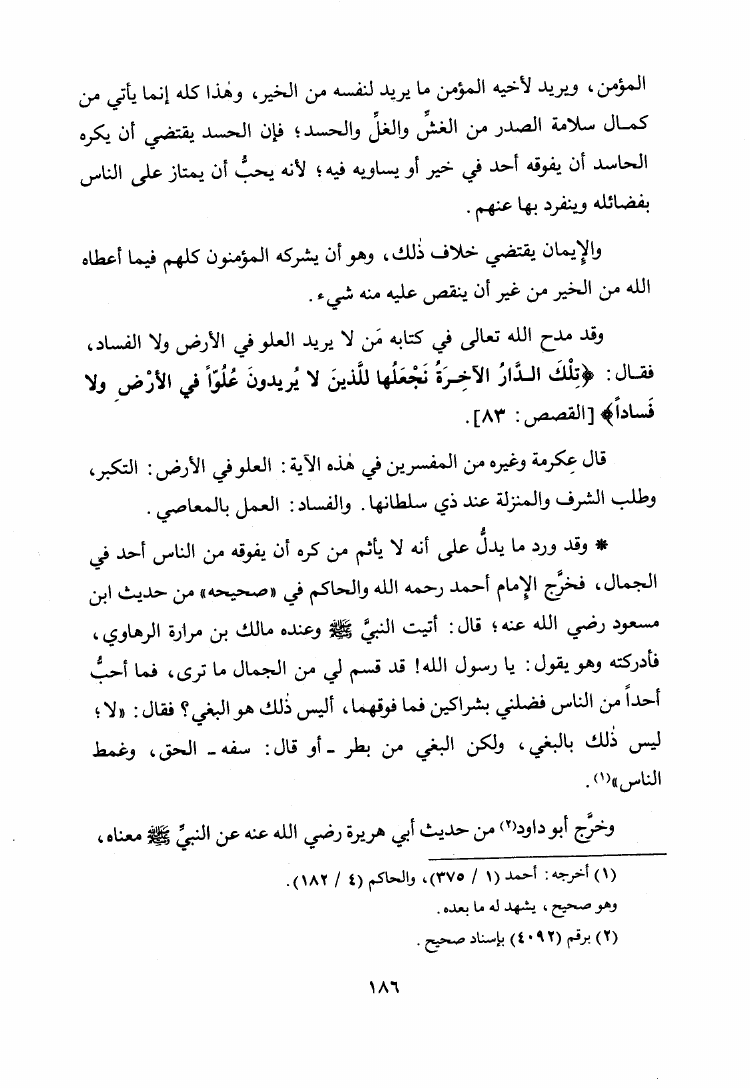 المؤمن، ويريد لأخيه المؤمن ما يريد لنفسه من الخير، وهٰذا كله إنما يأتي من
كمـال سلامة الصدر من الغشِّ والغلِّ والحسد؛ فإن الحسد يقتضي أن يكره
الحاسد أن يفوقه أحد في خير أو يساويه فيه؛ لأنه يحبُّ أن يمتاز على الناس
بفضائله وينفرد بها عنهم.
والإِيمان يقتضي خلاف ذٰلك، وهو أن يشركه المؤمنون كلهم فيما أعطاه
الله من الخير من غير أن ينقص عليه منه شيء.
وقد مدح الله تعالى في كتابه مَن لا يريد العلو في الأرض ولا الفساد،
فقـال: ﴿تِلْكَ الـدَّارُ الآخِـرَةُ نَجْعَلُها للَّذينَ لا يُريدونَ عُلُوّاً في الأرْضِ ولا
فَساداً﴾ [القصص: ٨٣].
قال عِكرمة وغيره من المفسرين في هٰذه الآية: العلو في الأرض: التكبر،
وطلب الشرف والمنزلة عند ذي سلطانها. والفساد: العمل بالمعاصي.
* وقد ورد ما يدلُّ على أنه لا يأثم من كره أن يفوقه من الناس أحد في
الجمال، فخرَّج الإِمام أحمد رحمه الله والحاكم في «صحيحه» من حديث ابن
مسعود رضي الله عنه؛ قال: أتيت النبيَّ ﷺ وعنده مالك بن مرارة الرهاوي،
فأدركته وهو يقول: يا رسول الله! قد قسم لي من الجمال ما ترى، فما أحبُّ
أحداً من الناس فضلني بشراكين فما فوقهما، أليس ذٰلك هو البغي؟ فقال: «لا؛
ليس ذٰلك بالبغي، ولكن البغي من بطر ـ أو قال: سفه ـ الحق، وغمط
الناس»(١).
وخرَّج أبو داود(٢) من حديث أبي هريرة رضي الله عنه عن النبيِّ ﷺ معناه،
(١) أخرجه: أحمد (١ / ٣٧٥)، والحاكم (٤ / ١٨٢).
وهو صحيح، يشهد له ما بعده.
(٢) برقم (٤٠٩٢) بإسناد صحيح.
١٨٦